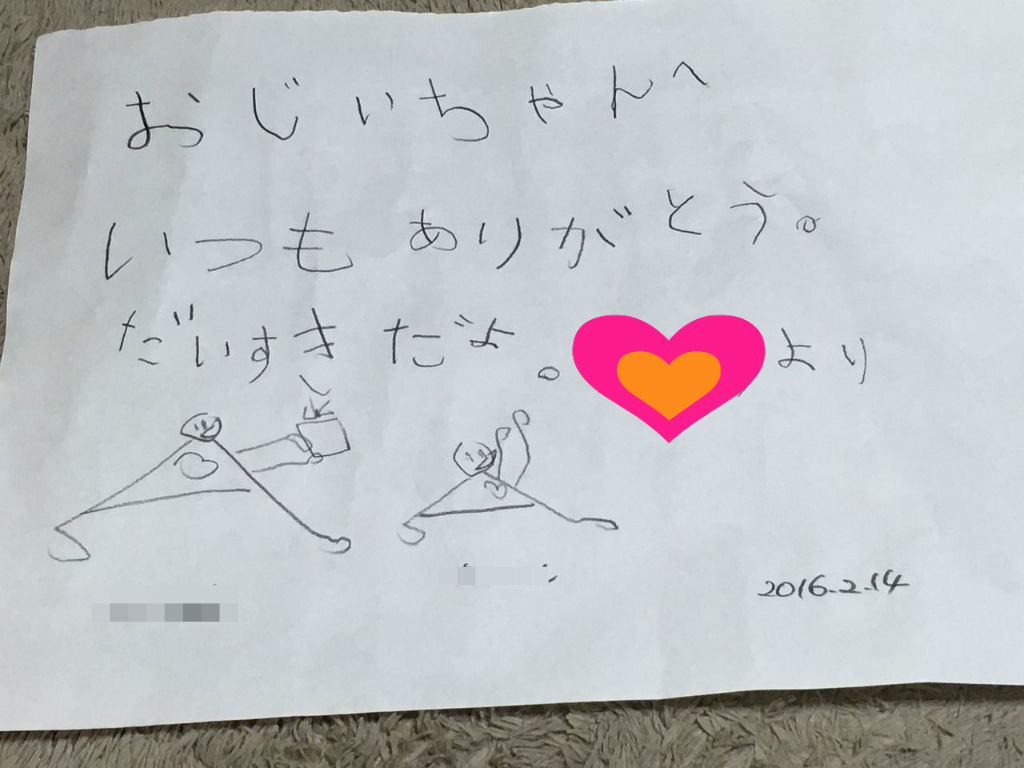 おじいちゃんへ
いつもありがとう。
だいすきだよ。より
2016.2.14